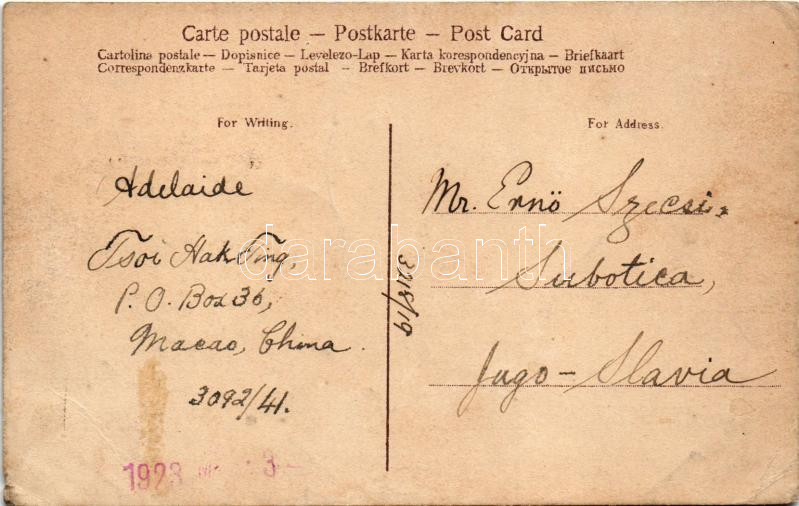 Carte postale — Postkarte — Post Card
Cartolina postale — Dopisnice — Levelezo-Lap — Karta korespondencyjna — Briefkaart
Correspondenzkarte — Tarjeta postal — Brefkort — Brevkort — Открытое письмо
For Writing.
For Address.
Adelaide
Tsoi Hak Ting,
P. O. Box 36,
Macao, China.
3092/41.
1923
3
Mr. Ernö Szecsi,
Subotica,
Jugo-Slavia
darabanth